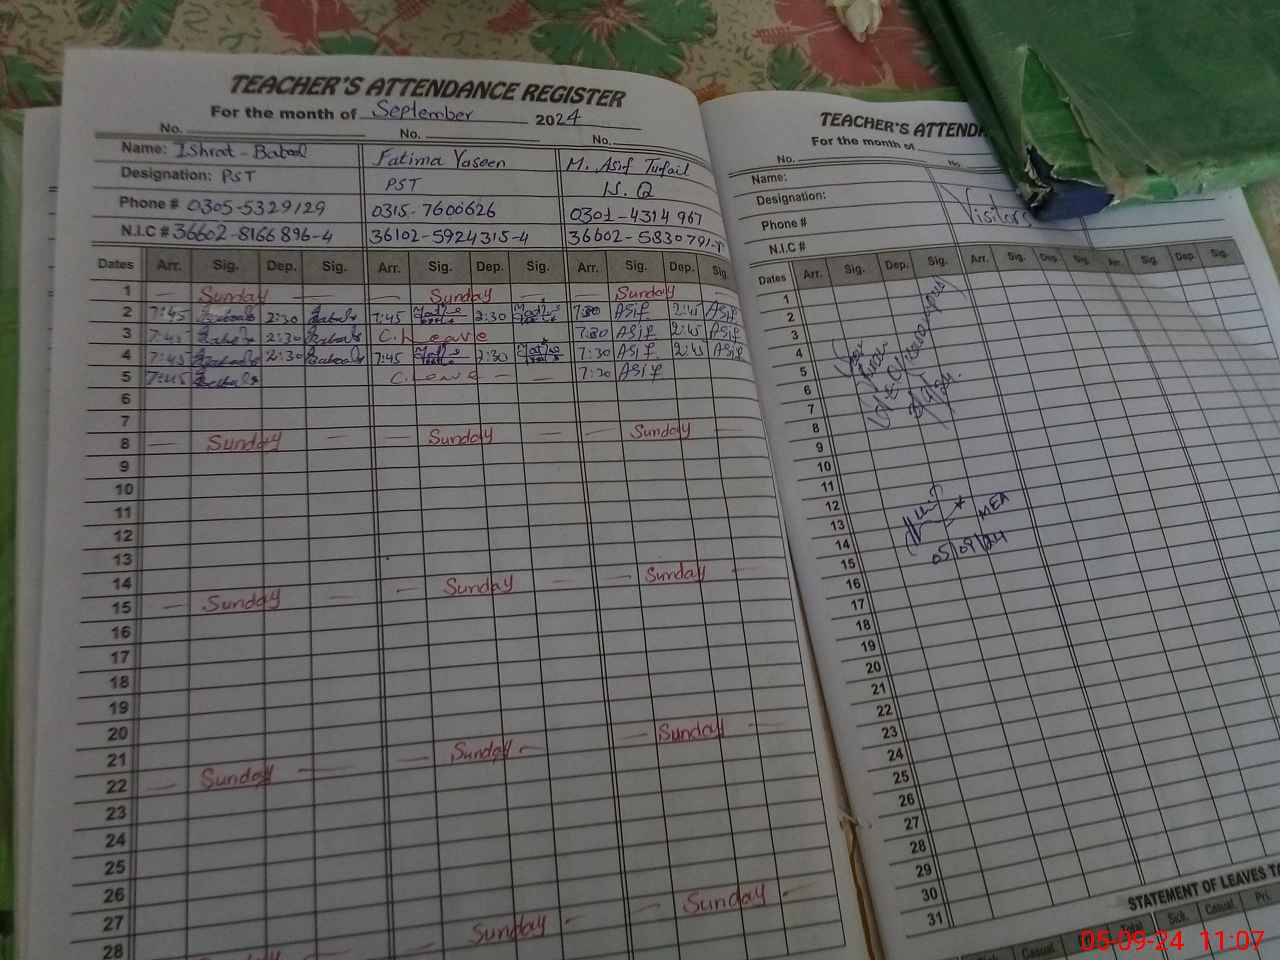 TEACHER'S ATTENDANCE REGISTER
For the month of September 2024
No. No. No.
Name: Ishrat-Batool Fatima Yaseen M. Asif Tufail
Designation: PST PST N.Q
Phone # 0305-5329129 0315-7600626 0301-4314967
N.I.C # 36602-8166896-4 36102-5924315-4 36602-5830791-
Dates Arr. Sig. Dep. Sig. Arr. Sig. Dep. Sig. Arr. Sig. Dep. Sig.
1 Sunday Sunday Sunday
2 7:45 2:30 7:45 2:30 7:30 Asif 2:45 Asif
3 7:45 2:30 C. Leave 7:30 Asif 2:45 Asif
4 7:45 2:30 7:45 2:30 7:30 Asif 2:45 Asif
5 7:45 C. Leave 7:30 Asif
6
7
8 Sunday Sunday Sunday
9
10
11
12
13
14 Sunday Sunday
15 Sunday
16
17
18
19
20 Sunday
21 Sunday
22 Sunday
23
24
25
26 Sunday
27 Sunday
28 Sunday
TEACHER'S ATTEND
For the month of
No. No.
Name:
Designation: Visitors
Phone #
N.I.C #
Dates Arr. Sig. Dep. Sig. Arr. Sig. Dep. Sig. Arr. Sig. Dep. Sig.
1
2
3
4
5
6
7
8
9
10
11
12
13 MEA
14 05/09/24
15
16
17
18
19
20
21
22
23
24
25
26
27
28
29
30
31
STATEMENT OF LEAVES TO
Casual Sick. Casual. Pri.
05-09-24 11:07